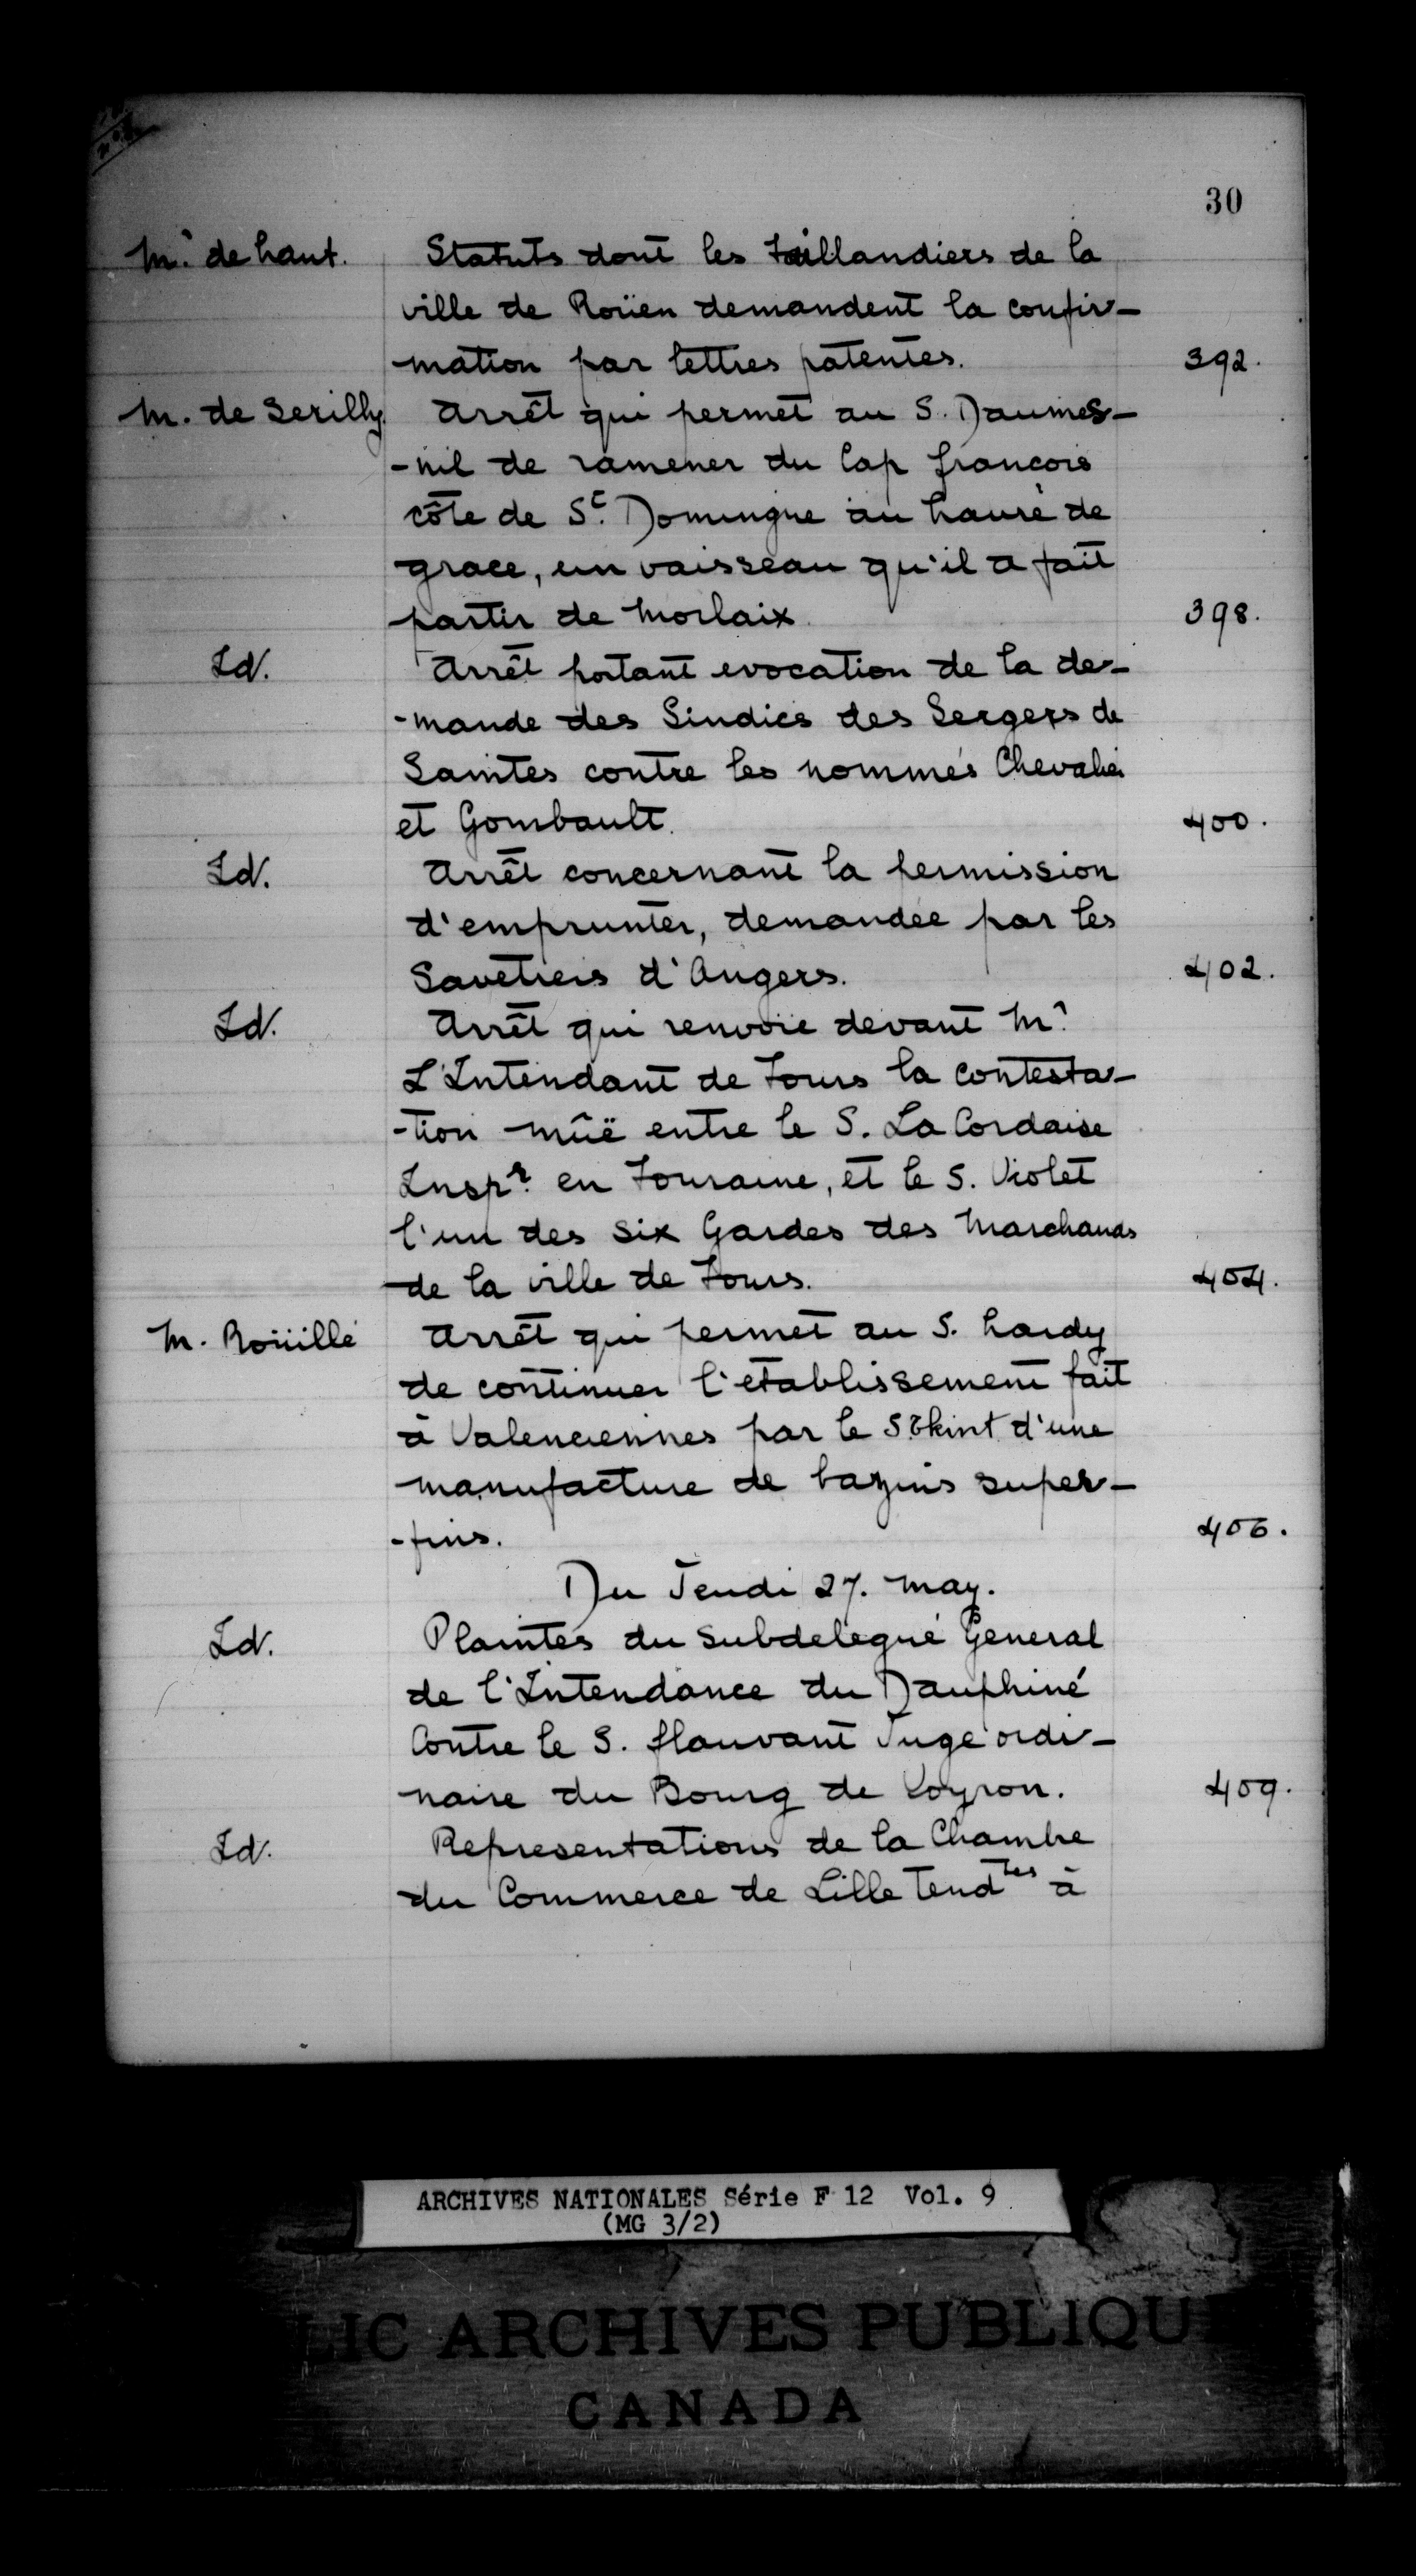 30
M.r de haut. Statuts dont les taillandiers de la
ville de Roüen demandent la confir-
mation par lettres patentes. 392.
M. de Serilly. Arrêt qui permet au S. Daumes-
-nil de ramener du Cap francois
côte de St. Domingue au havre de
grace, un vaisseau qu'il a fait
partir de Morlaix. 398.
Id. Arrêt portant evocation de la de-
-mande des Sindics des Sergers de
Saintes contre les nommés Chevalier
et Gombault. 400.
Id. Arrêt concernant la permission
d'emprunter, demandée par les
Savetiers d'Angers. 402.
Id. Arrêt qui renvoie devant Mr
L'Intendant de Tours la contesta-
-tion mûë entre le S. La Cordaise
Inspr. en Touraine, et le S. Violet
l'un des six Gardes des Marchands
de la ville de Tours. 404.
M. Roüillé Arrêt qui permet au S. hardy
de continuer l'etablissement fait
à Valenciennes par le S. d'une
manufacture de bazins super-
-fins. 406.
Du Jeudi 27. May.
Id. Plaintes du subdelegué General
de l'Intendance du Dauphiné
Contre le S. flauvant Juge ordi-
naire du Bourg de Voyron. 409.
Id. Representations de la Chambre
du Commerce de Lille tendtes à
ARCHIVES NATIONALES Série F 12 Vol. 9
(MG 3/2)
LIC ARCHIVES PUBLIQU
CANADA